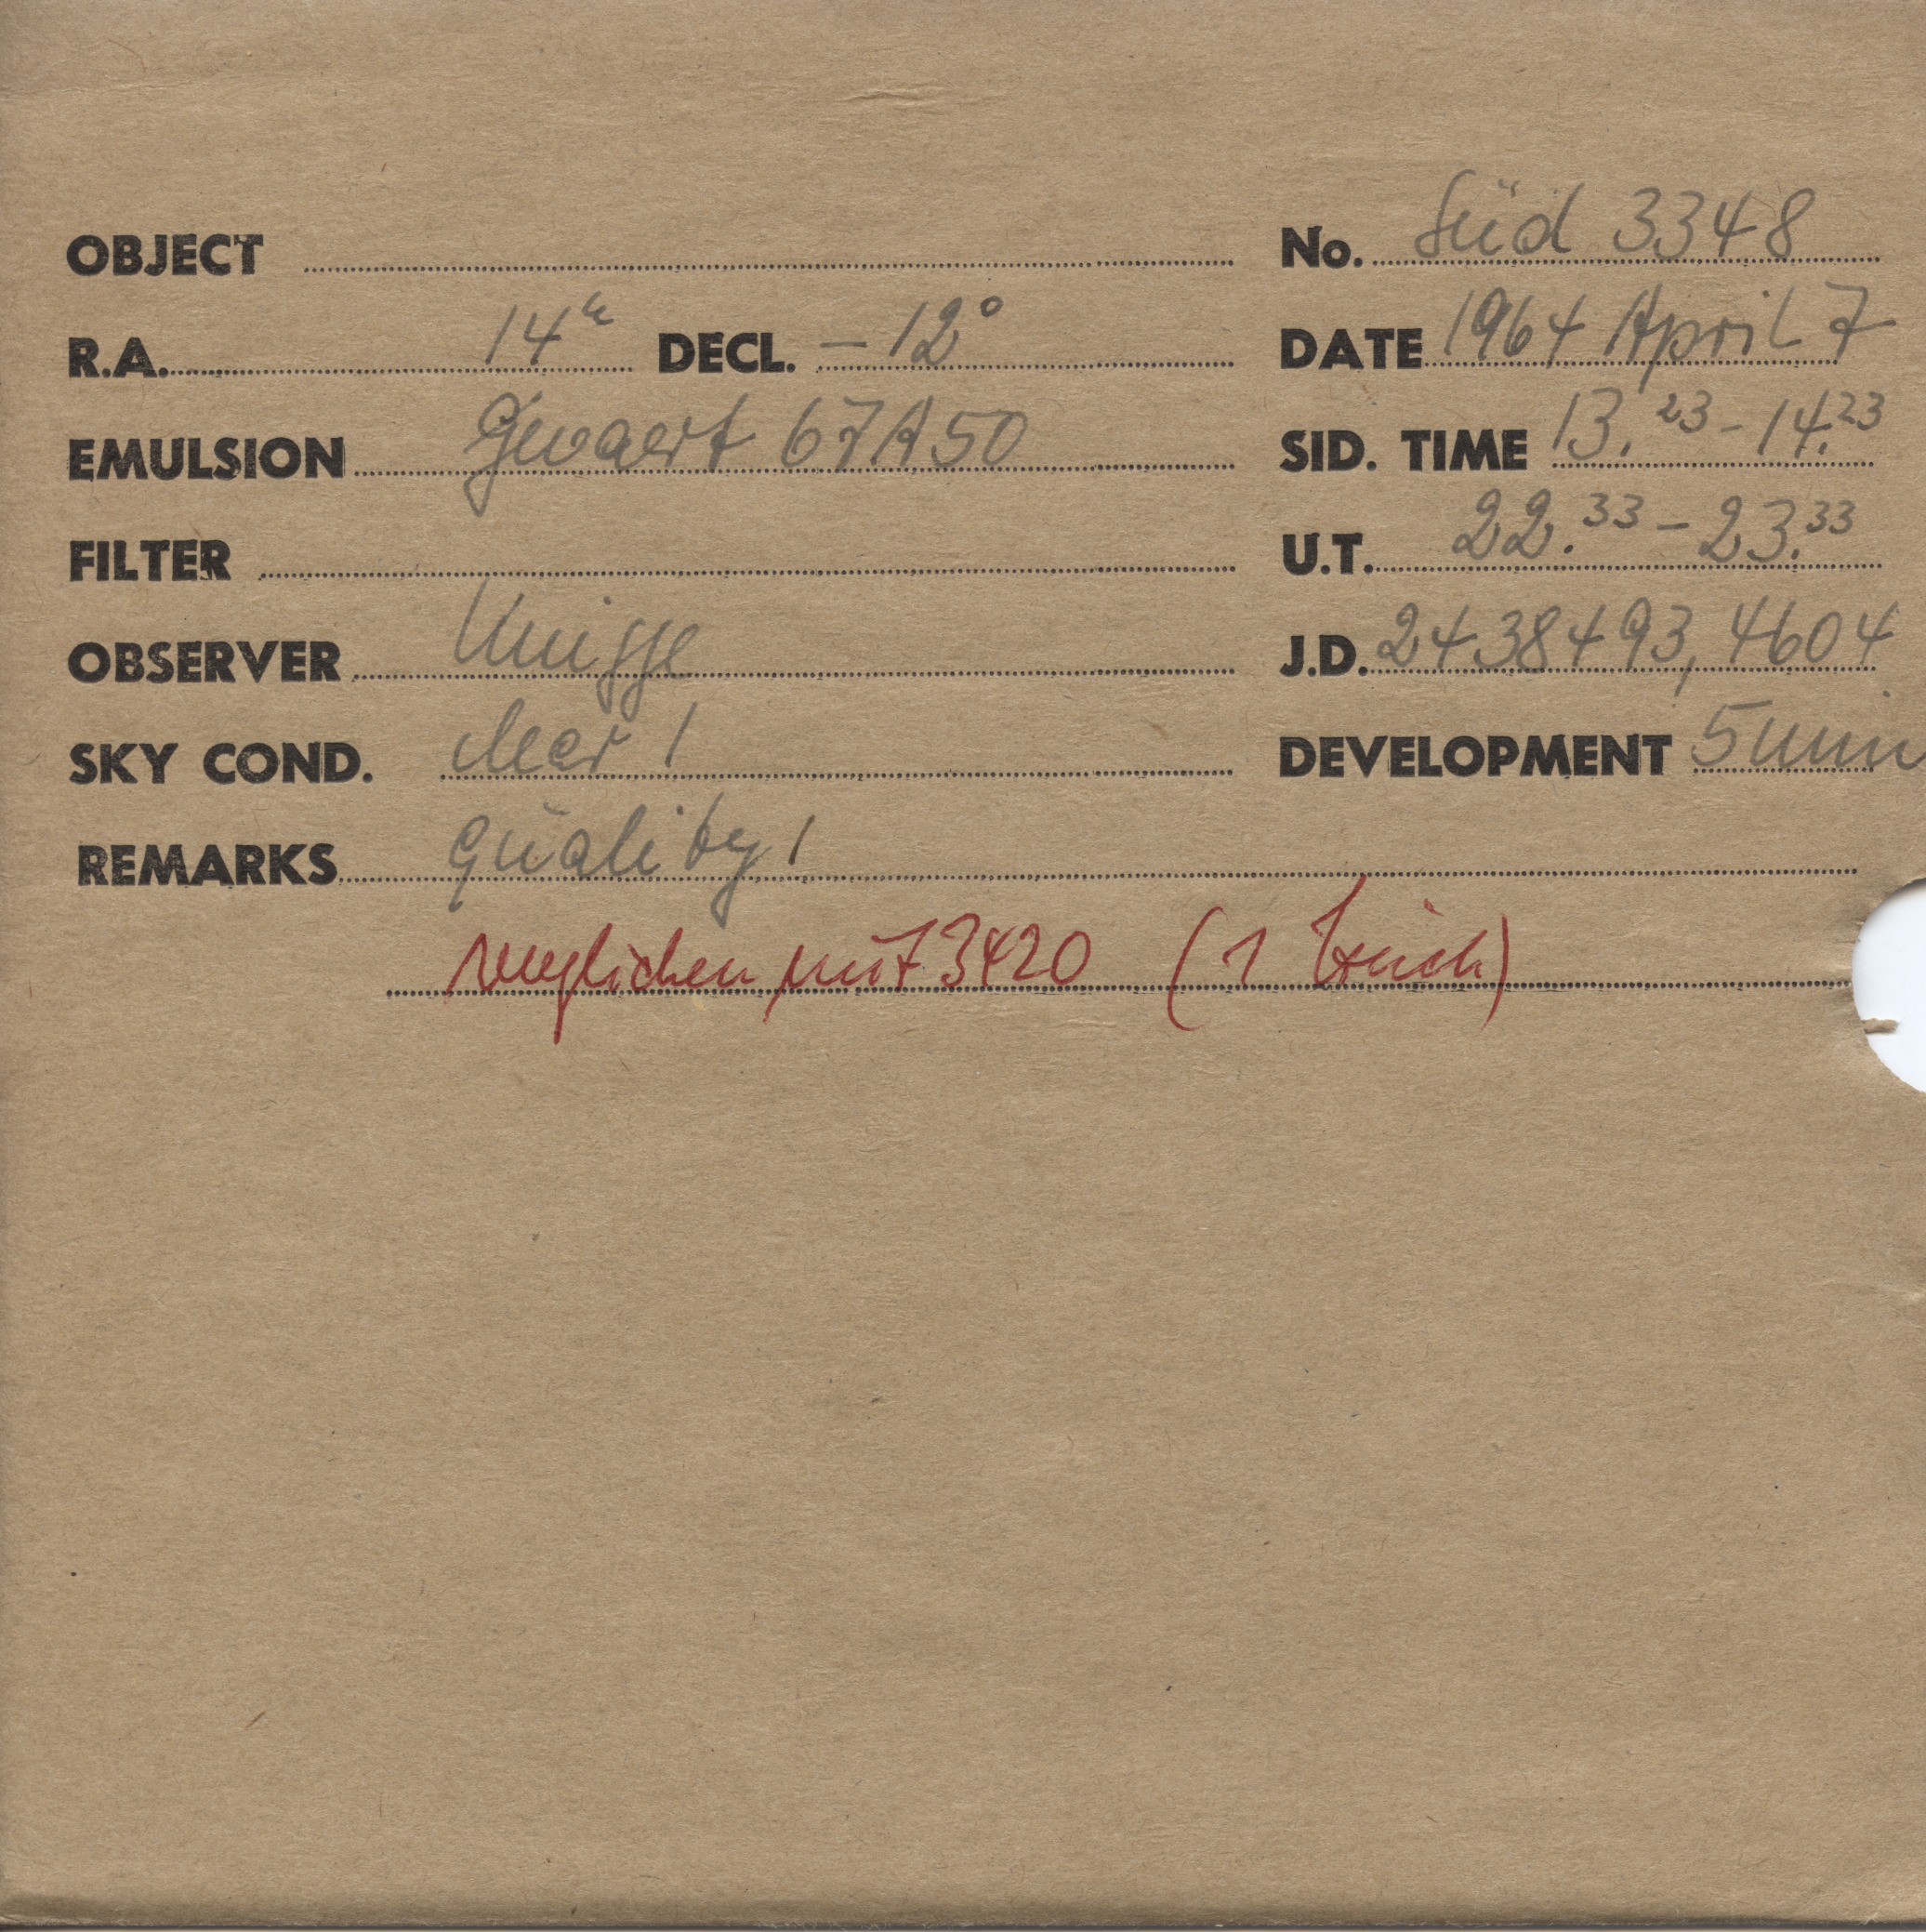 OBJECT No. Süd 3348
R.A. 14h DECL. -12°
DATE 1964 April 7
EMULSION Gevaert 67A50
SID. TIME 13.23 - 14.23
FILTER
U.T. 22.33 - 23.33
OBSERVER
J.D. 2438493,4604
SKY COND. clear 1
DEVELOPMENT 5 min
REMARKS quality 1
verglichen mit 3420 (1